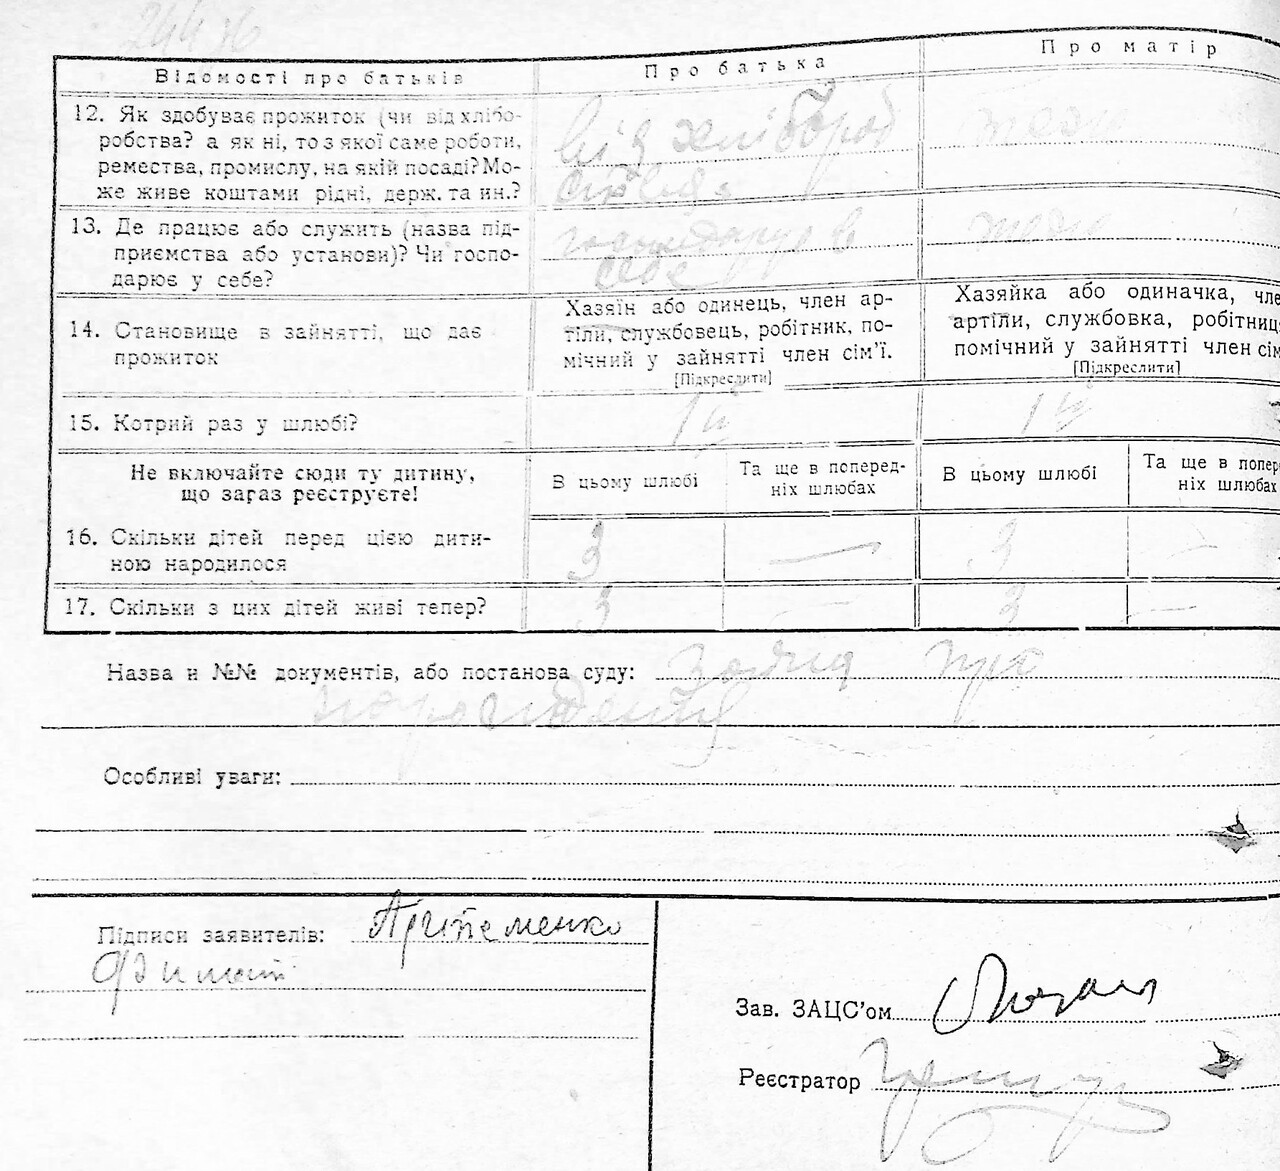 244
Відомості про батьків
Про батька
Про матір
12. Як здобуває прожиток (чи від хлібо-
робства? а як ні, то з якої саме роботи,
ремества, промислу, на якій посаді? Мо-
же живе коштами рідні, держ. та ин.?
Від хлібороб
ства
теж
13. Де працює або служить (назва під-
приємства або установи)? Чи госпо-
дарює у себе?
господарює в
себе
теж
14. Становище в зайнятті, що дає
прожиток
Хазяїн або одинець, член ар-
тіли, службовець, робітник, по-
мічний у зайнятті член сім'ї.
[Підкреслити]
Хазяйка або одиначка, чле
артіли, службовка, робітниц
помічний у зайнятті член сім
[Підкреслити]
15. Котрий раз у шлюбі?
1й
1й
Не включайте сюди ту дитину,
що зараз реєструєте!
В цьому шлюбі
Та ще в поперед-
ніх шлюбах
В цьому шлюбі
Та ще в попер
ніх шлюбах
16. Скільки дітей перед цією дити-
ною народилося
3
—
3
—
17. Скільки з цих дітей живі тепер?
3
3
—
Назва и №№ документів, або постанова суду: про
Особливі уваги:
Підписи заявителів: Артеменко
Зав. ЗАЦС'ом
Реєстратор